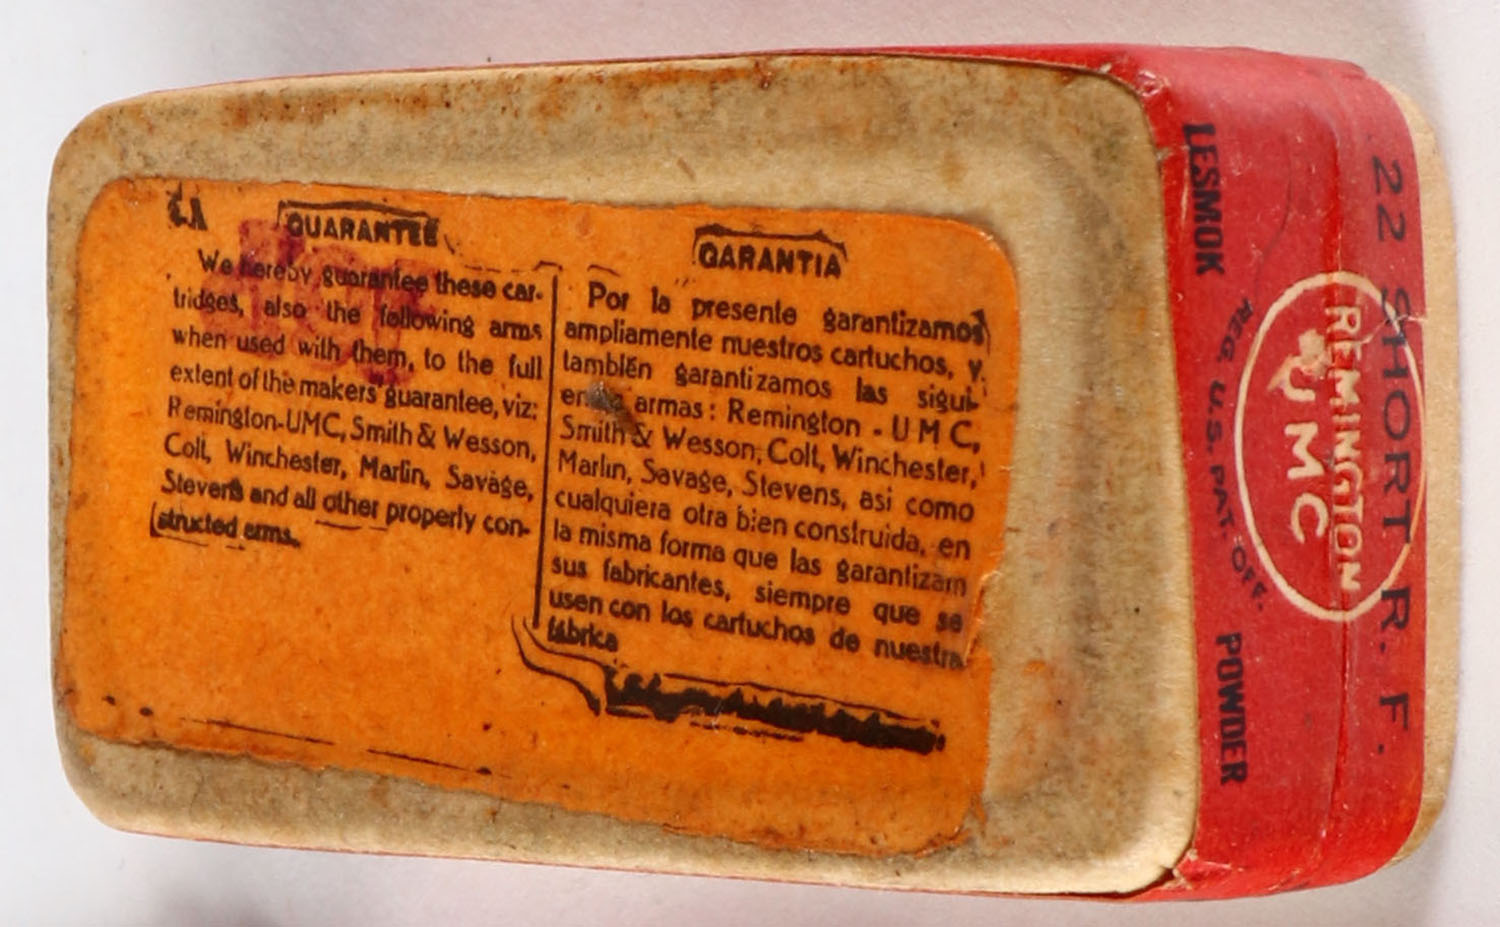 GUARANTEE
We hereby guarantee these car-
tridges, also the following arms
when used with them, to the full
extent of the makers' guarantee, viz:
Remington-UMC, Smith & Wesson,
Colt, Winchester, Marlin, Savage,
Stevens and all other properly con-
structed arms.
GARANTIA
Por la presente garantizamos
ampliamente nuestros cartuchos, y
también garantizamos las sigui-
armas: Remington - U M C,
Smith & Wesson, Colt, Winchester,
Marlin, Savage, Stevens, asi como
cualquiera otra bien construida, en
la misma forma que las garantizam
sus fabricantes, siempre que se
usen con los cartuchos de nuestra
fábrica
22 SHORT R. F.
REMINGTON
UMC
REG. U.S. PAT. OFF.
LESMOK POWDER